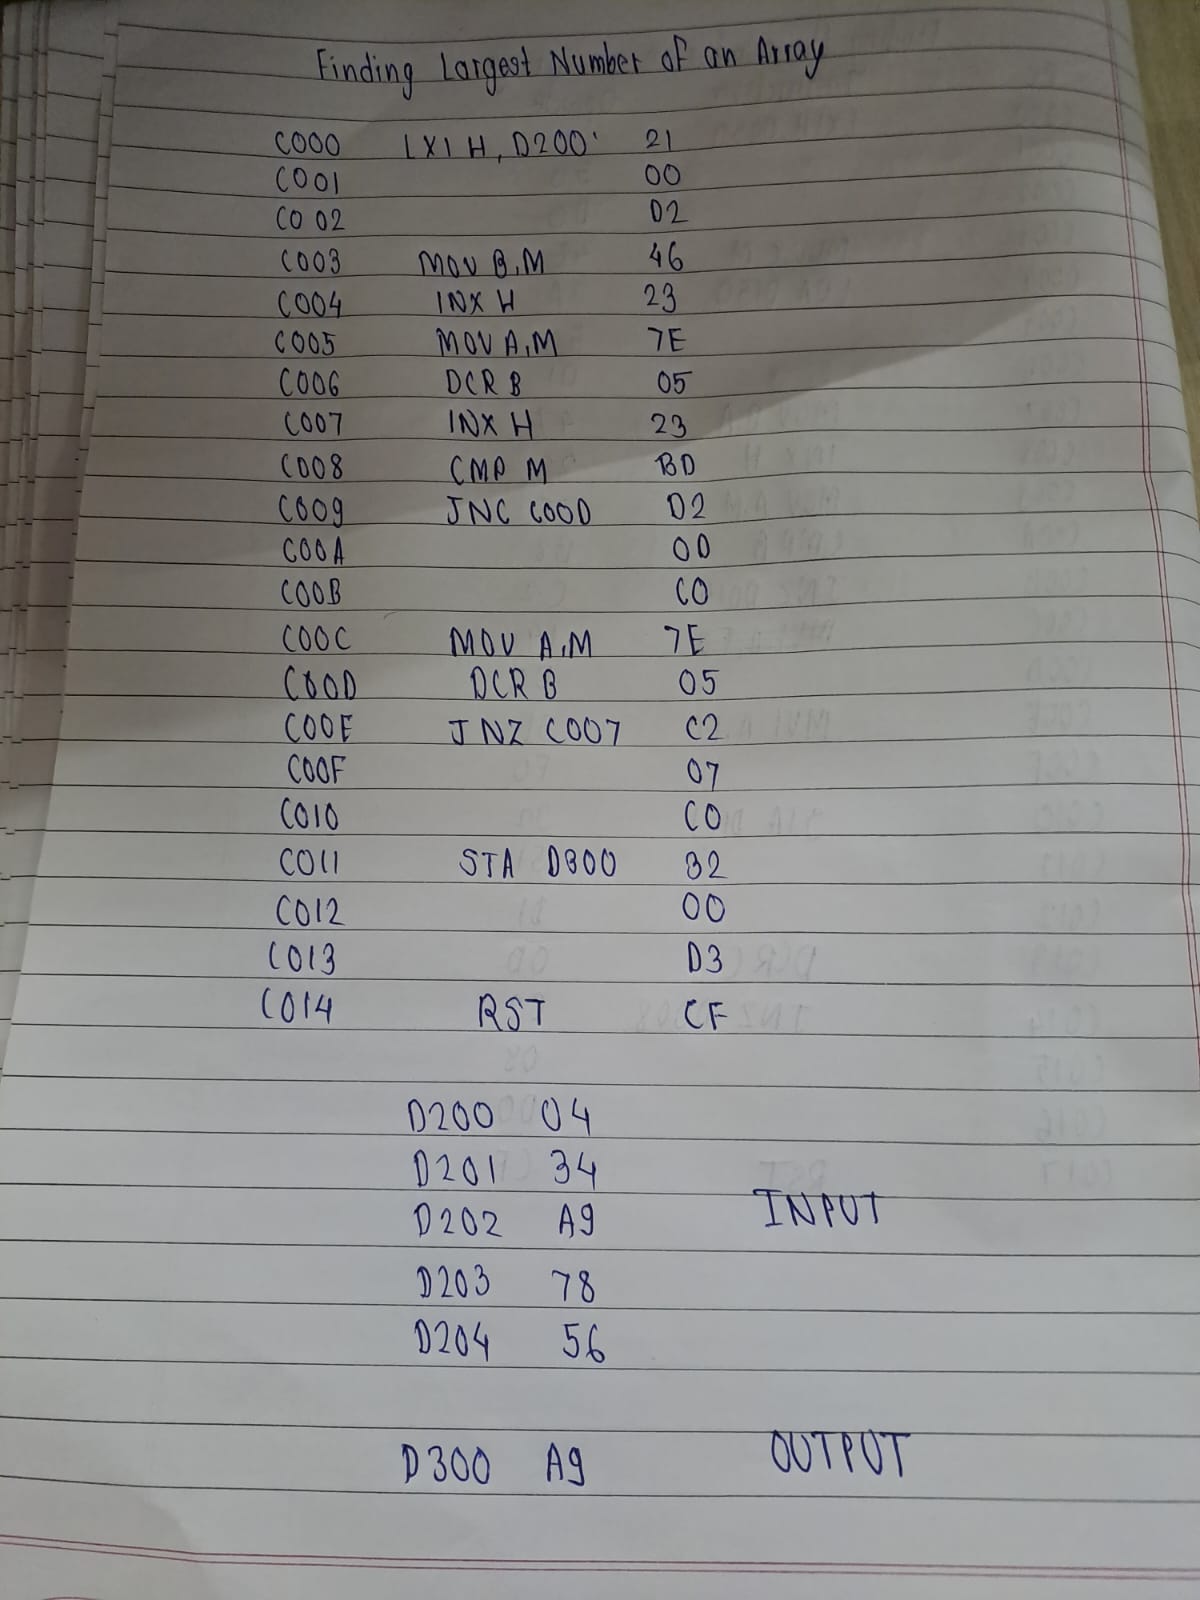 Finding Largest Number of an Array
C000 LXI H, D200 21
C001 00
C002 D2
C003 MOV B,M 46
C004 INX H 23
C005 MOV A,M 7E
C006 DCR B 05
C007 INX H 23
C008 CMP M BD
C009 JNC C00D D2
C00A 0D
C00B C0
C00C MOV A,M 7E
C00D DCR B 05
C00E JNZ C007 C2
C00F 07
C010 C0
C011 STA D300 32
C012 00
C013 D3
C014 RST CF
D200 04
D201 34
INPUT
D202 A9
D203 78
D204 56
D300 A9 OUTPUT